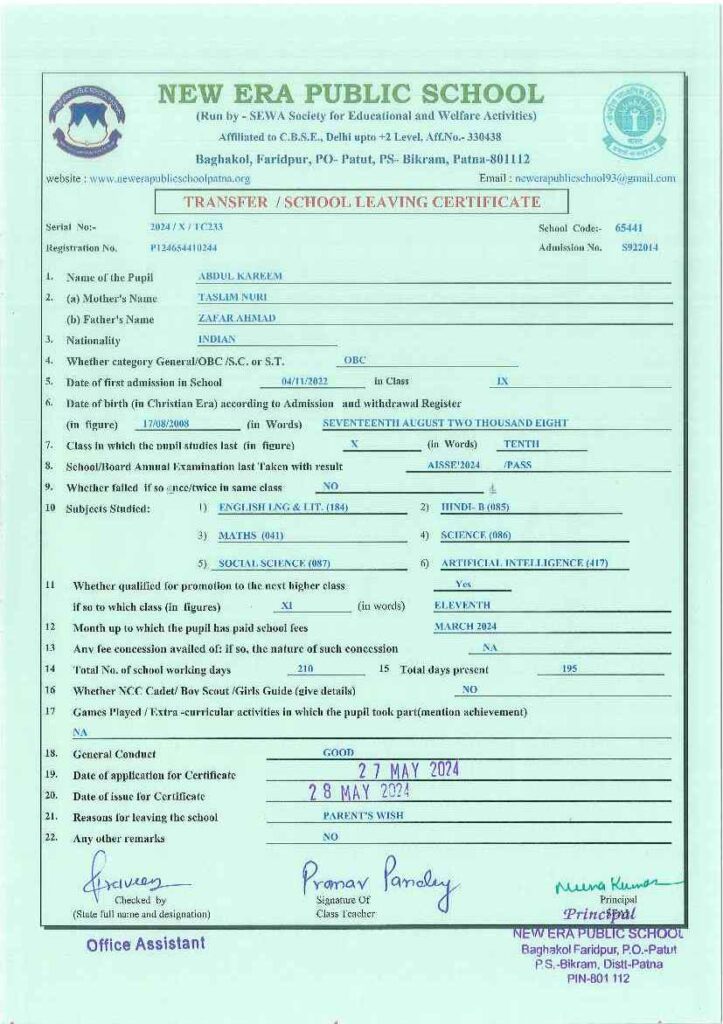 NEW ERA PUBLIC SCHOOL
(Run by - SEWA Society for Educational and Welfare Activities)
Affiliated to C.B.S.E., Delhi upto +2 Level, Aff.No.- 330438
Baghakol, Faridpur, PO- Patut, PS- Bikram, Patna-801112
website : www.newerapublicschoolpatna.org Email : newerapublicschool93@gmail.com
TRANSFER / SCHOOL LEAVING CERTIFICATE
Serial No:- 2024 / X / TC233 School Code:- 65441
Registration No. P124654410244 Admission No. S922014
1. Name of the Pupil ABDUL KAREEM
2. (a) Mother's Name TASLIM NURI
(b) Father's Name ZAFAR AHMAD
3. Nationality INDIAN
4. Whether category General/OBC /S.C. or S.T. OBC
5. Date of first admission in School 04/11/2022 in Class IX
6. Date of birth (in Christian Era) according to Admission and withdrawal Register
(in figure) 17/08/2008 (in Words) SEVENTEENTH AUGUST TWO THOUSAND EIGHT
7. Class in which the pupil studies last (in figure) X (in Words) TENTH
8. School/Board Annual Examination last Taken with result AISSE'2024 /PASS
9. Whether failed if so once/twice in same class NO
10 Subjects Studied: 1) ENGLISH LNG & LIT. (184) 2) HINDI- B (085)
3) MATHS (041) 4) SCIENCE (086)
5) SOCIAL SCIENCE (087) 6) ARTIFICIAL INTELLIGENCE (417)
11 Whether qualified for promotion to the next higher class Yes
if so to which class (in figures) XI (in words) ELEVENTH
12 Month up to which the pupil has paid school fees MARCH 2024
13 Any fee concession availed of: if so, the nature of such concession NA
14 Total No. of school working days 210 15 Total days present 195
16 Whether NCC Cadet/ Boy Scout /Girls Guide (give details) NO
17 Games Played / Extra -curricular activities in which the pupil took part(mention achievement)
NA
18. General Conduct GOOD
19. Date of application for Certificate 27 MAY 2024
20. Date of issue for Certificate 28 MAY 2024
21. Reasons for leaving the school PARENT'S WISH
22. Any other remarks NO
Praveen Pranav Pandey Neena Kumar
Checked by Signature Of Principal
(State full name and designation) Class Teacher
Principal
Office Assistant NEW ERA PUBLIC SCHOOL
Baghakol Faridpur, P.O.-Patut
P.S.-Bikram, Distt-Patna
PIN-801 112